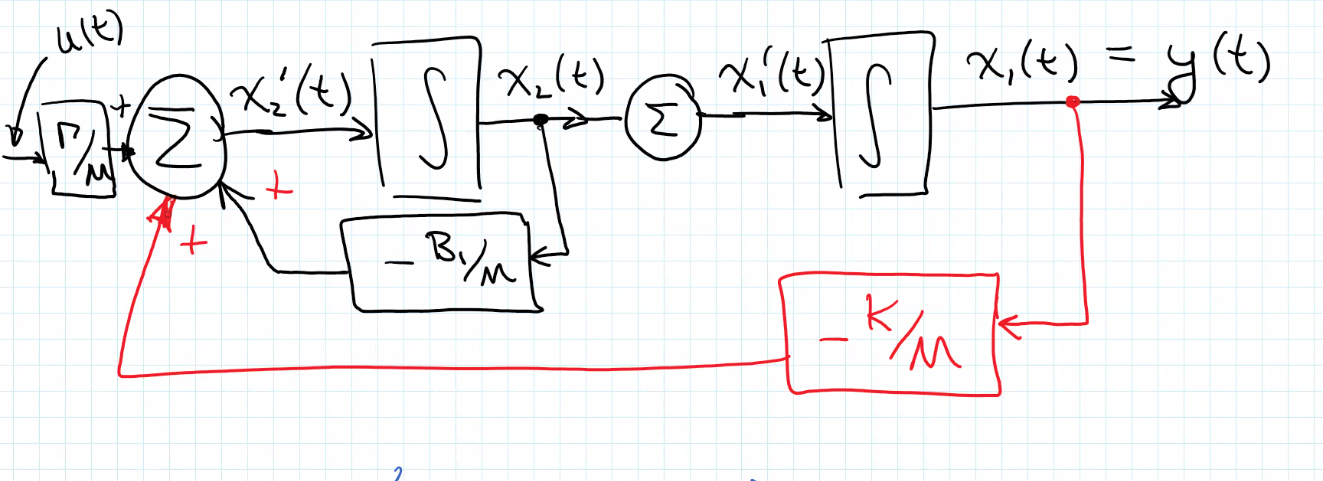 u(t)
Γ/M + Σ x₂'(t) ∫ x₂(t) Σ x₁'(t) ∫ x₁(t) = y(t)
+
+
- B₁/M
- K/M
2